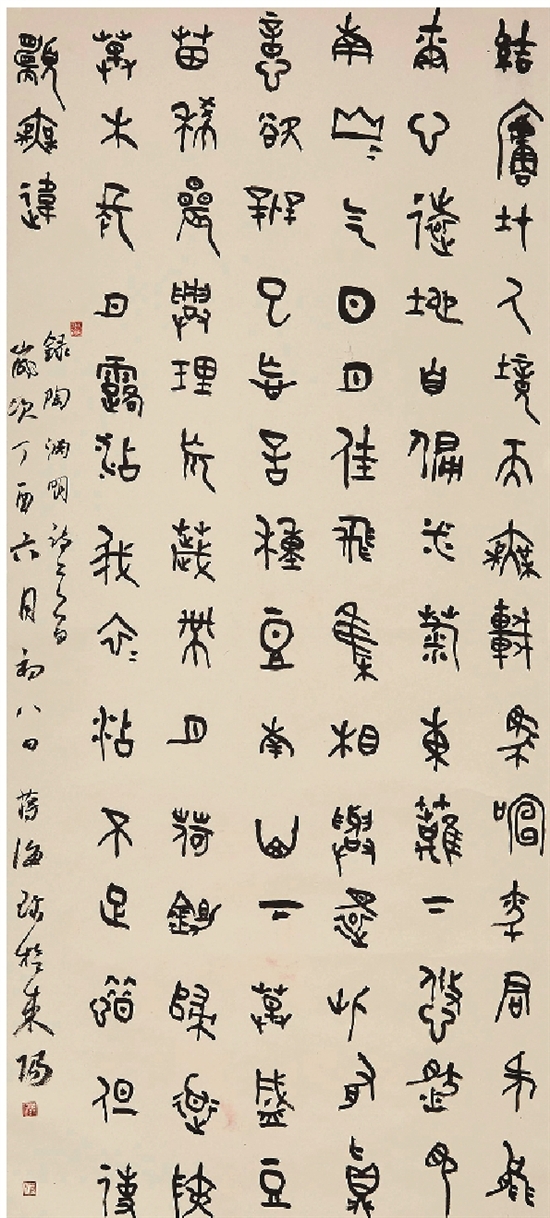 結廬在人境而無車馬喧問君何能
爾心遠地自偏采菊東籬下悠然見
南山=氣日夕佳飛鳥相與還此有真
意欲辨已忘言種豆南山下草盛豆
苗稀晨興理荒穢帶月荷鋤歸道狹
草木長夕露沾我衣=沾不足惜但使
願無違
錄陶淵明詩二首
歲次丁酉六月初八日蔣海於東陽